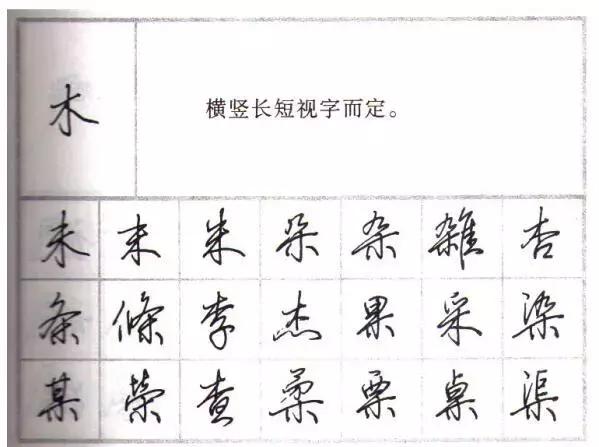 木 横竖长短视字而定。
未 末 米 朵 杂 雜 杏
条 條 李 杰 果 采 染
某 荣 查 柔 栗 桌 渠